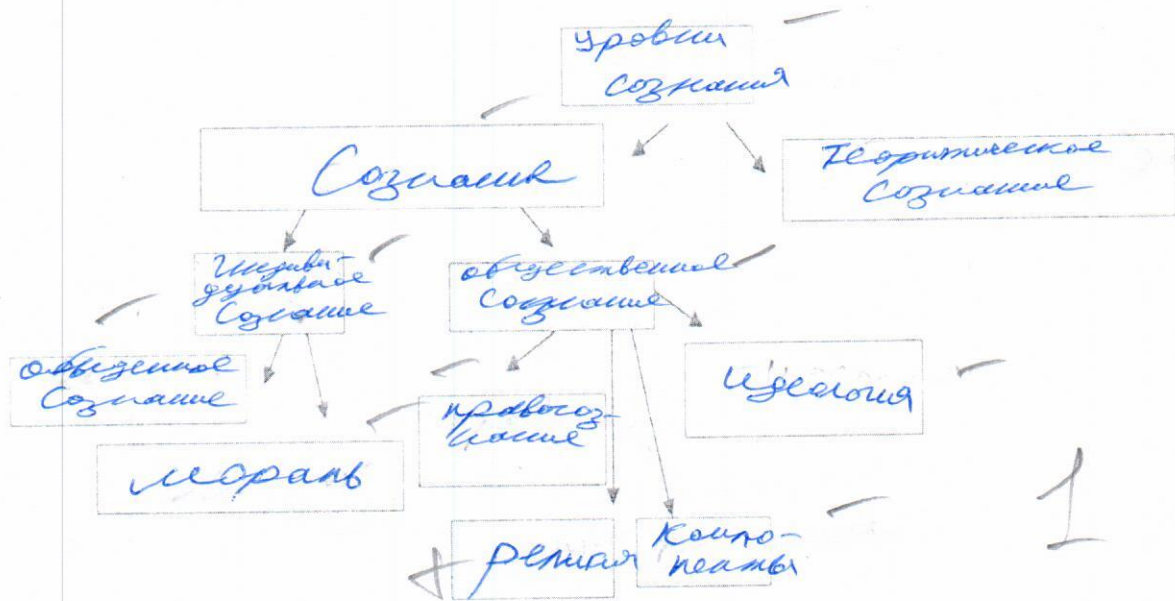 уровни
сознания
Сознание
Теоритическое
сознание
Индиви-
дуальное
Сознание
общественное
Сознание
обыденное
Сознание
мораль
правосоз-
нание
идеология
+ религия
Компо-
ненты
1